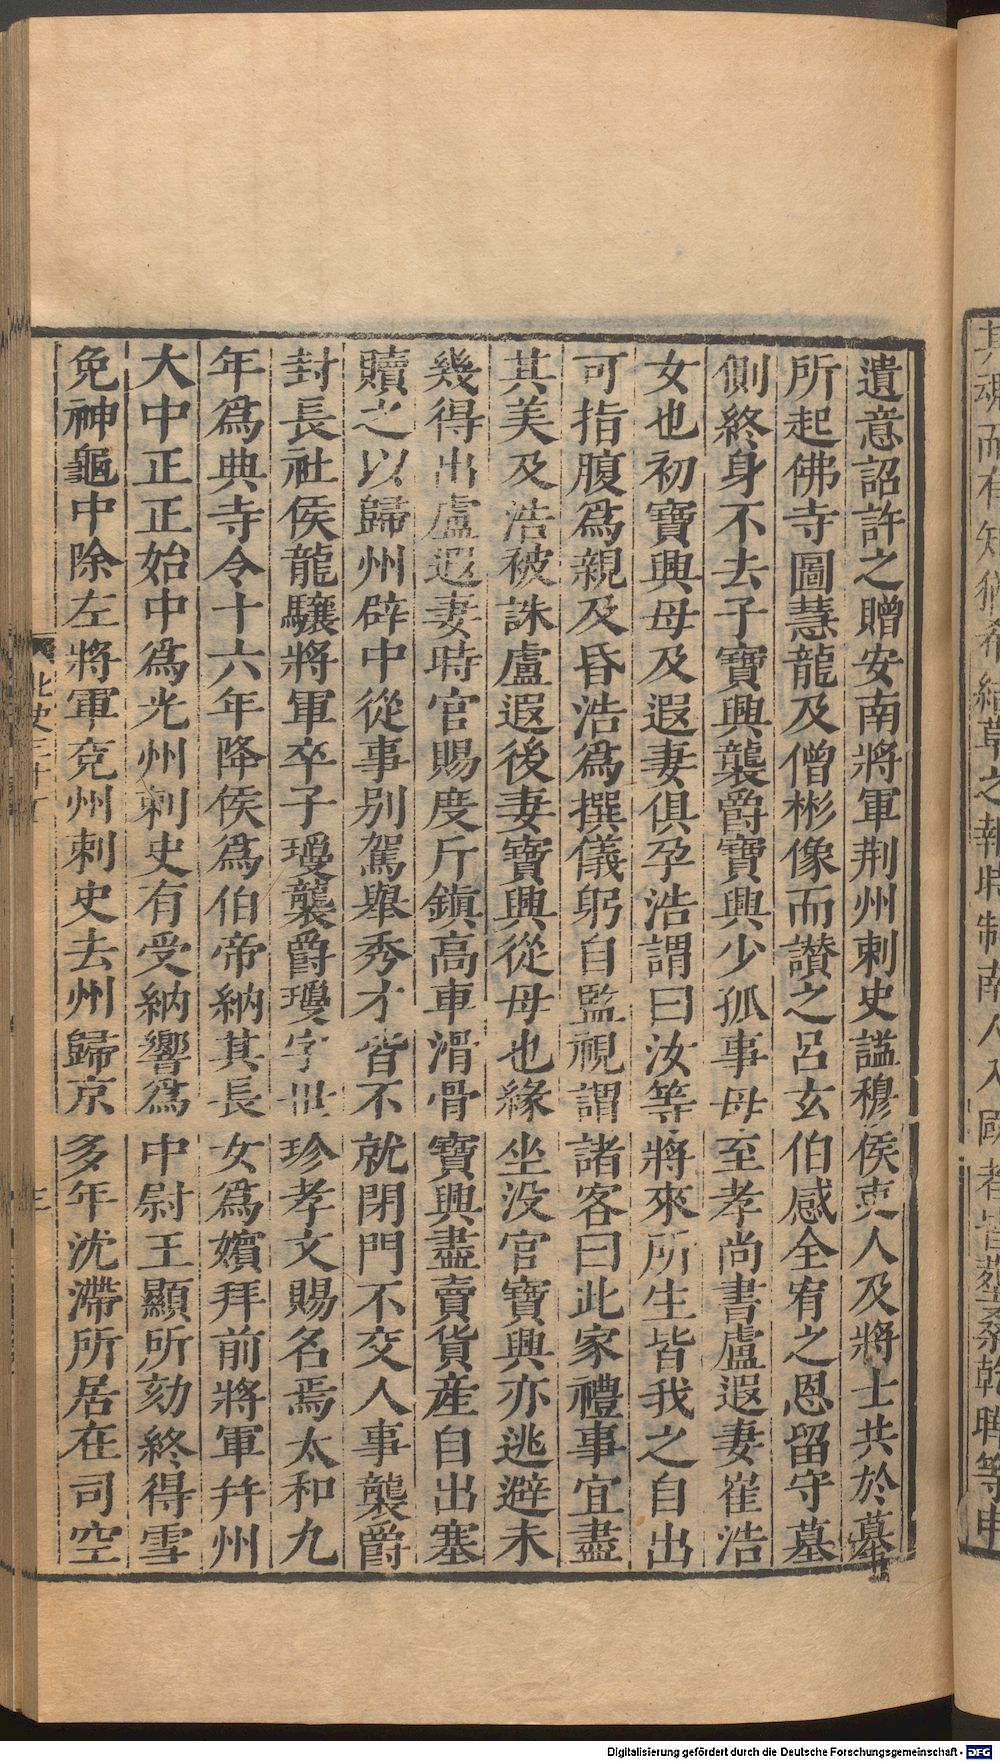 其魂而有知猶希結草之報時制南人入國者皆葬桑乾聘等申
遺意詔許之贈安南將軍荆州刺史謚穆侯吏人及將士共於墓
所起佛寺圖慧龍及僧彬像而讃之呂玄伯感全宥之恩留守墓
側終身不去子寶興襲爵寶興少孤事母至孝尚書盧遐妻崔浩
女也初寶興母及遐妻俱孕浩謂曰汝等將來所生皆我之自出
可指腹爲親及昏浩爲撰儀躬自監視謂諸客曰此家禮事宜盡
其美及浩被誅盧遐後妻寶興從母也緣坐没官寶興亦逃避未
幾得出盧遐妻時官賜度斤鎭高車滑骨寶興盡賣貨産自出塞
贖之以歸州辟中從事别駕舉秀才皆不就閉門不交人事襲爵
封長社侯龍驤將軍卒子瓊襲爵瓊字世珍孝文賜名焉太和九
年爲典寺令十六年降侯爲伯帝納其長女爲嬪拜前將軍并州
大中正正始中爲光州刺史有受納響爲中尉王顯所劾終得雪
免神龜中除左將軍兖州刺史去州歸京多年沈滯所居在司空
北史三十五
三
Digitalisierung gefördert durch die Deutsche Forschungsgemeinschaft - DFG